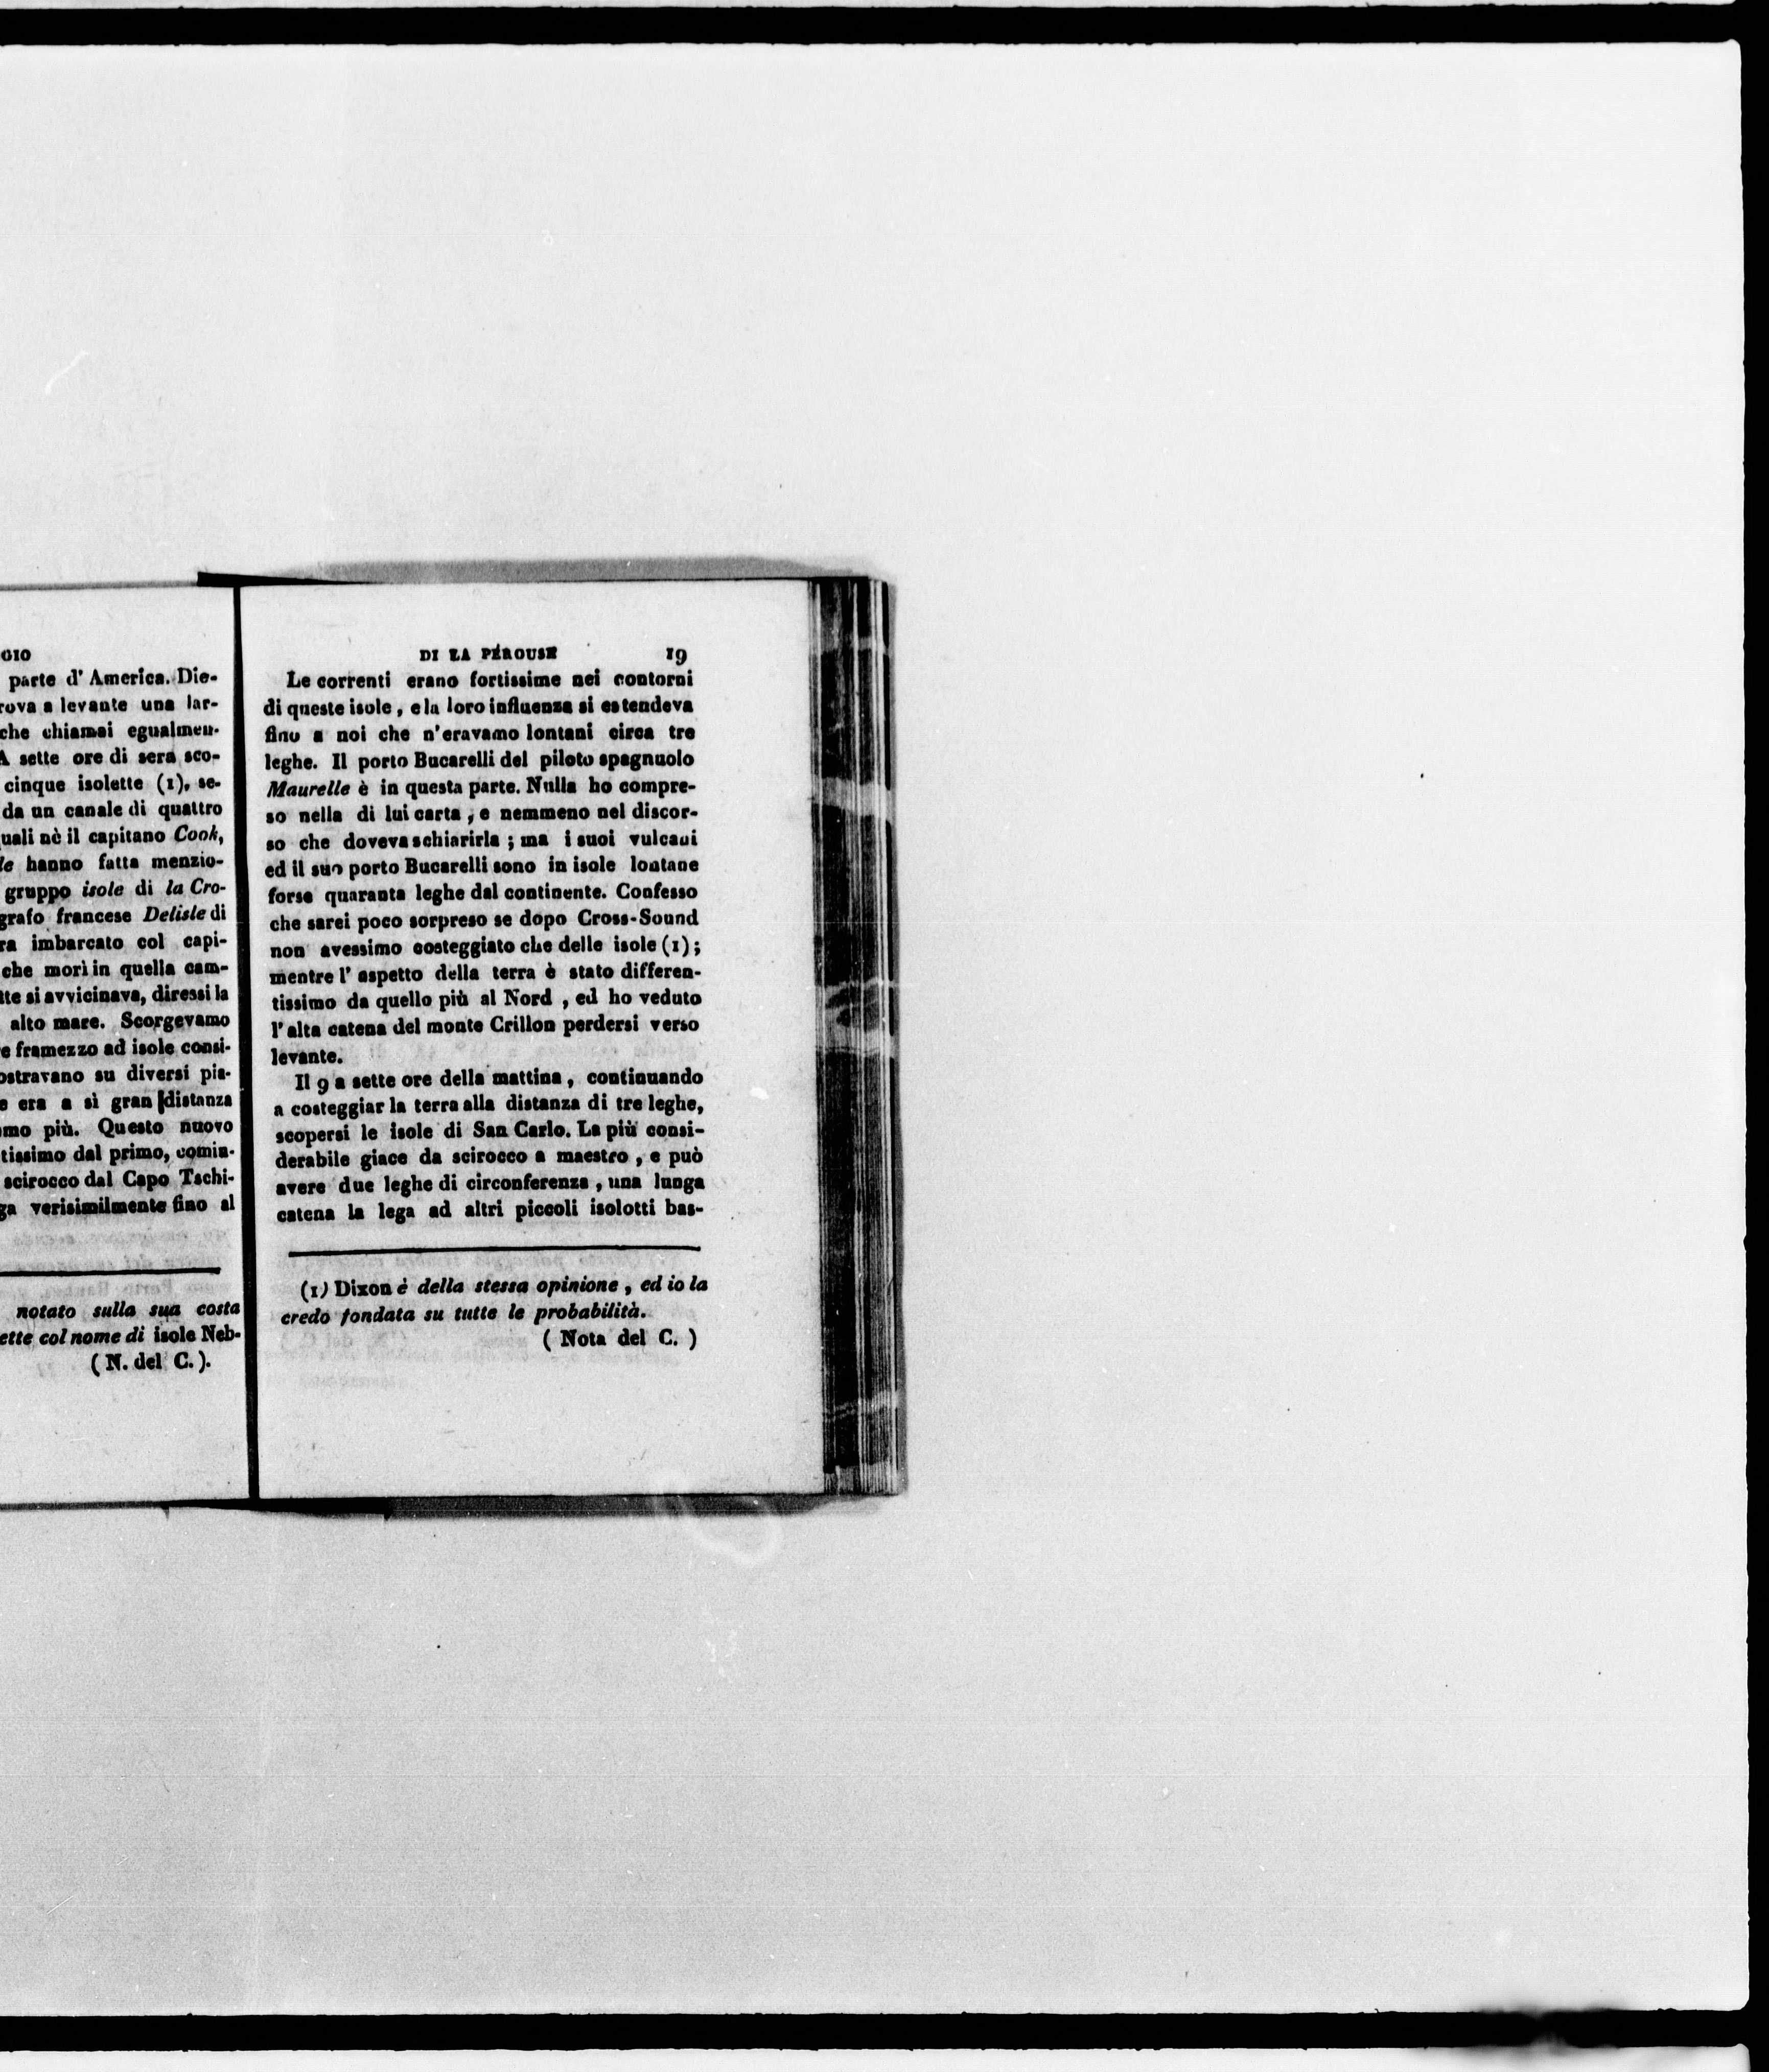 GIO
parte d' America. Die-
rova a levante una lar-
che chiamai egualmen-
A sette ore di sera sco-
cinque isolette (1), se-
da un canale di quattro
uali nè il capitano Cook,
le hanno fatta menzio-
gruppo isole di la Cro-
grafo francese Delisle di
ra imbarcato col capi-
che morì in quella cam-
tte si avvicinava, diressi la
alto mare. Scorgevamo
e framezzo ad isole consi-
ostravano su diversi pia-
e era a sì gran distanza
mo più. Questo nuovo
tissimo dal primo, comin-
scirocco dal Capo Tschi-
ga verisimilmente fino al
notato sulla sua costa
ette col nome di isole Neb-
( N. del C. ).
DI LA PÉROUSE 19
Le correnti erano fortissime nei contorni
di queste isole, e la loro influenza si estendeva
fino a noi che n'eravamo lontani circa tre
leghe. Il porto Bucarelli del piloto spagnuolo
Maurelle è in questa parte. Nulla ho compre-
so nella di lui carta, e nemmeno nel discor-
so che doveva schiarirla; ma i suoi vulcani
ed il suo porto Bucarelli sono in isole lontane
forse quaranta leghe dal continente. Confesso
che sarei poco sorpreso se dopo Cross-Sound
non avessimo costeggiato che delle isole (1);
mentre l' aspetto della terra è stato differen-
tissimo da quello più al Nord, ed ho veduto
l' alta catena del monte Crillon perdersi verso
levante.
Il 9 a sette ore della mattina, continuando
a costeggiar la terra alla distanza di tre leghe,
scopersi le isole di San Carlo. La più consi-
derabile giace da scirocco a maestro, e può
avere due leghe di circonferenza, una lunga
catena la lega ad altri piccoli isolotti bas-
(1) Dixon è della stessa opinione, ed io la
credo fondata su tutte le probabilità.
( Nota del C. )